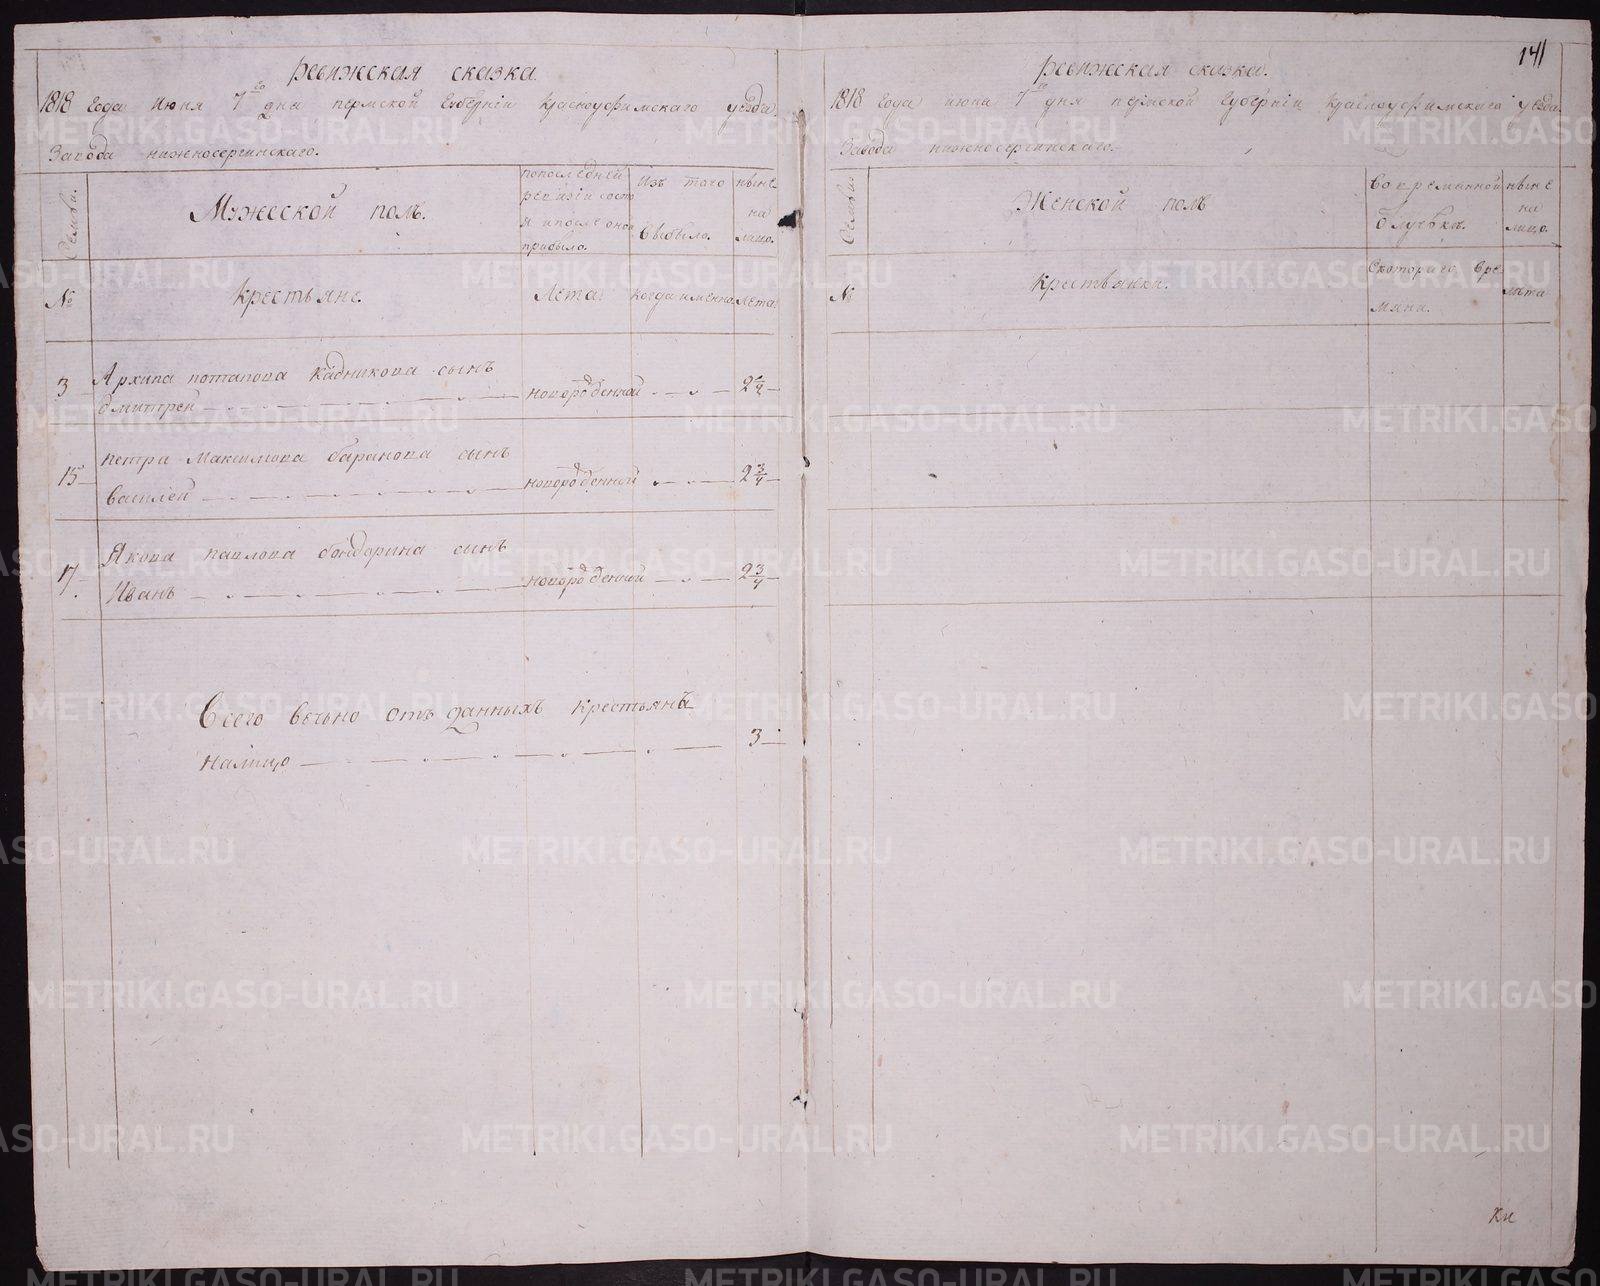 Ревижская сказка.
1818 года Июня 7го дня пермской Губерніи Красноуфимскаго уезда
Завода нижносергинскаго.
Семьи.
Мужеской полъ.
попоследней
ревизіи сост
я ипосле оной
прибыло.
Изъ того
выбыло.
ныне
на
лицо.
№
Крестьяне.
Лета.
когда именно.
Лета.
3 Архипа потапова Кадникова сынъ
дмитрей новорожденной 2
15 петра Максимова баранова сынъ
василей новорожденной 2 3/4
17. Якова павлова бондорина сынъ
Иванъ новорожденной 2 3/4
Всего вечьно отъ данныхъ крестьянъ
налицо 3
141
Ревижская сказка.
1818 года июня 7го дня пермской Губерніи Красноуфимскаго уезда
Завода нижносергинскаго.
Семьи.
Женской полъ
Во временной
отлучке.
ныне
на
лицо.
№
Крестьянки.
Скотораго вре
мяни.
лета
METRIKI.GASO-URAL.RU